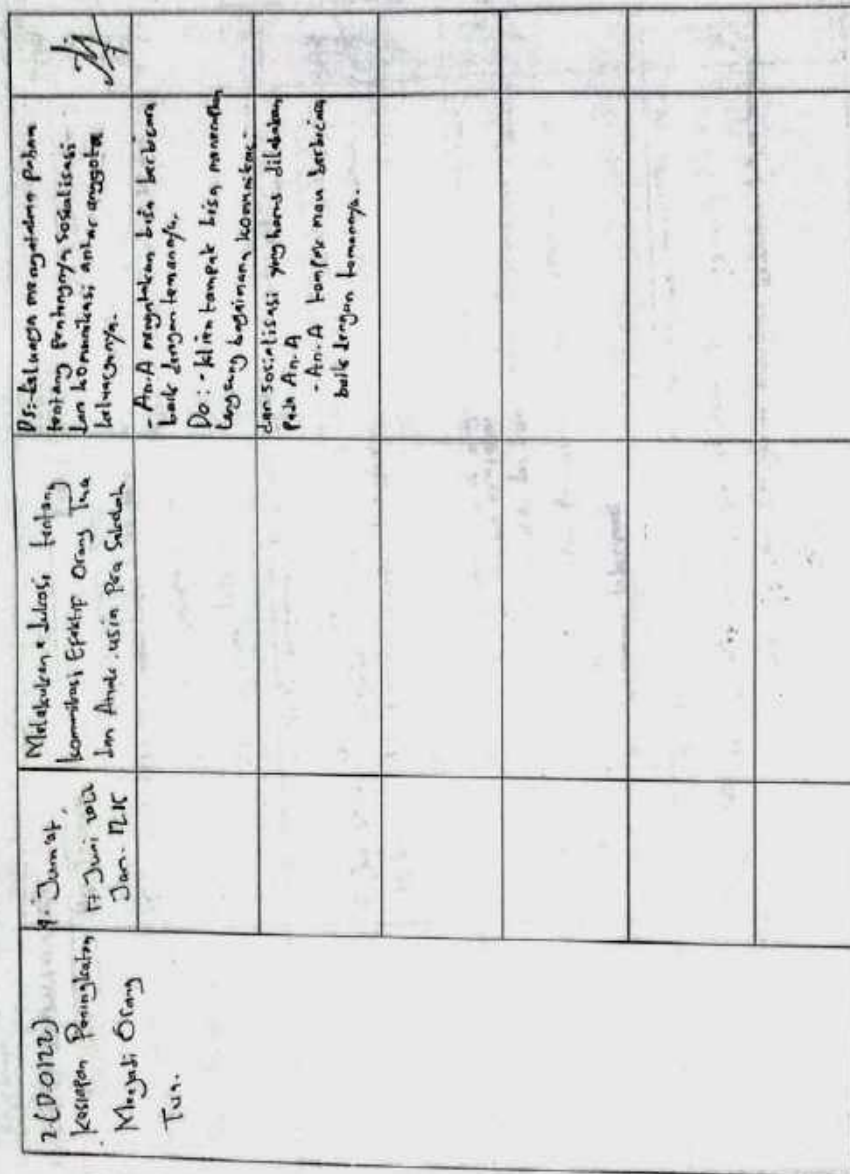 2. (D.0122)
Kesiapan Peningkatan
Menjadi Orang
Tua.
1. Jum'at,
17 Juni 2022
Jam.
Melakukan edukasi tentang
komunikasi Efektif Orang Tua
dan Anak usia Pra Sekolah
DS:-keluarga mengatakan paham
tentang pentingnya sosialisasi
dan komunikasi antar anggota
keluarganya.
- An.A mengatakan bisa berbicara
baik dengan temannya.
Do: - klien tampak bisa menerapkan
langsung bagaimana komunikasi
dan sosialisasi yang harus dilakukan
pada An.A
- An.A tampak mau berbicara
baik dengan temannya.